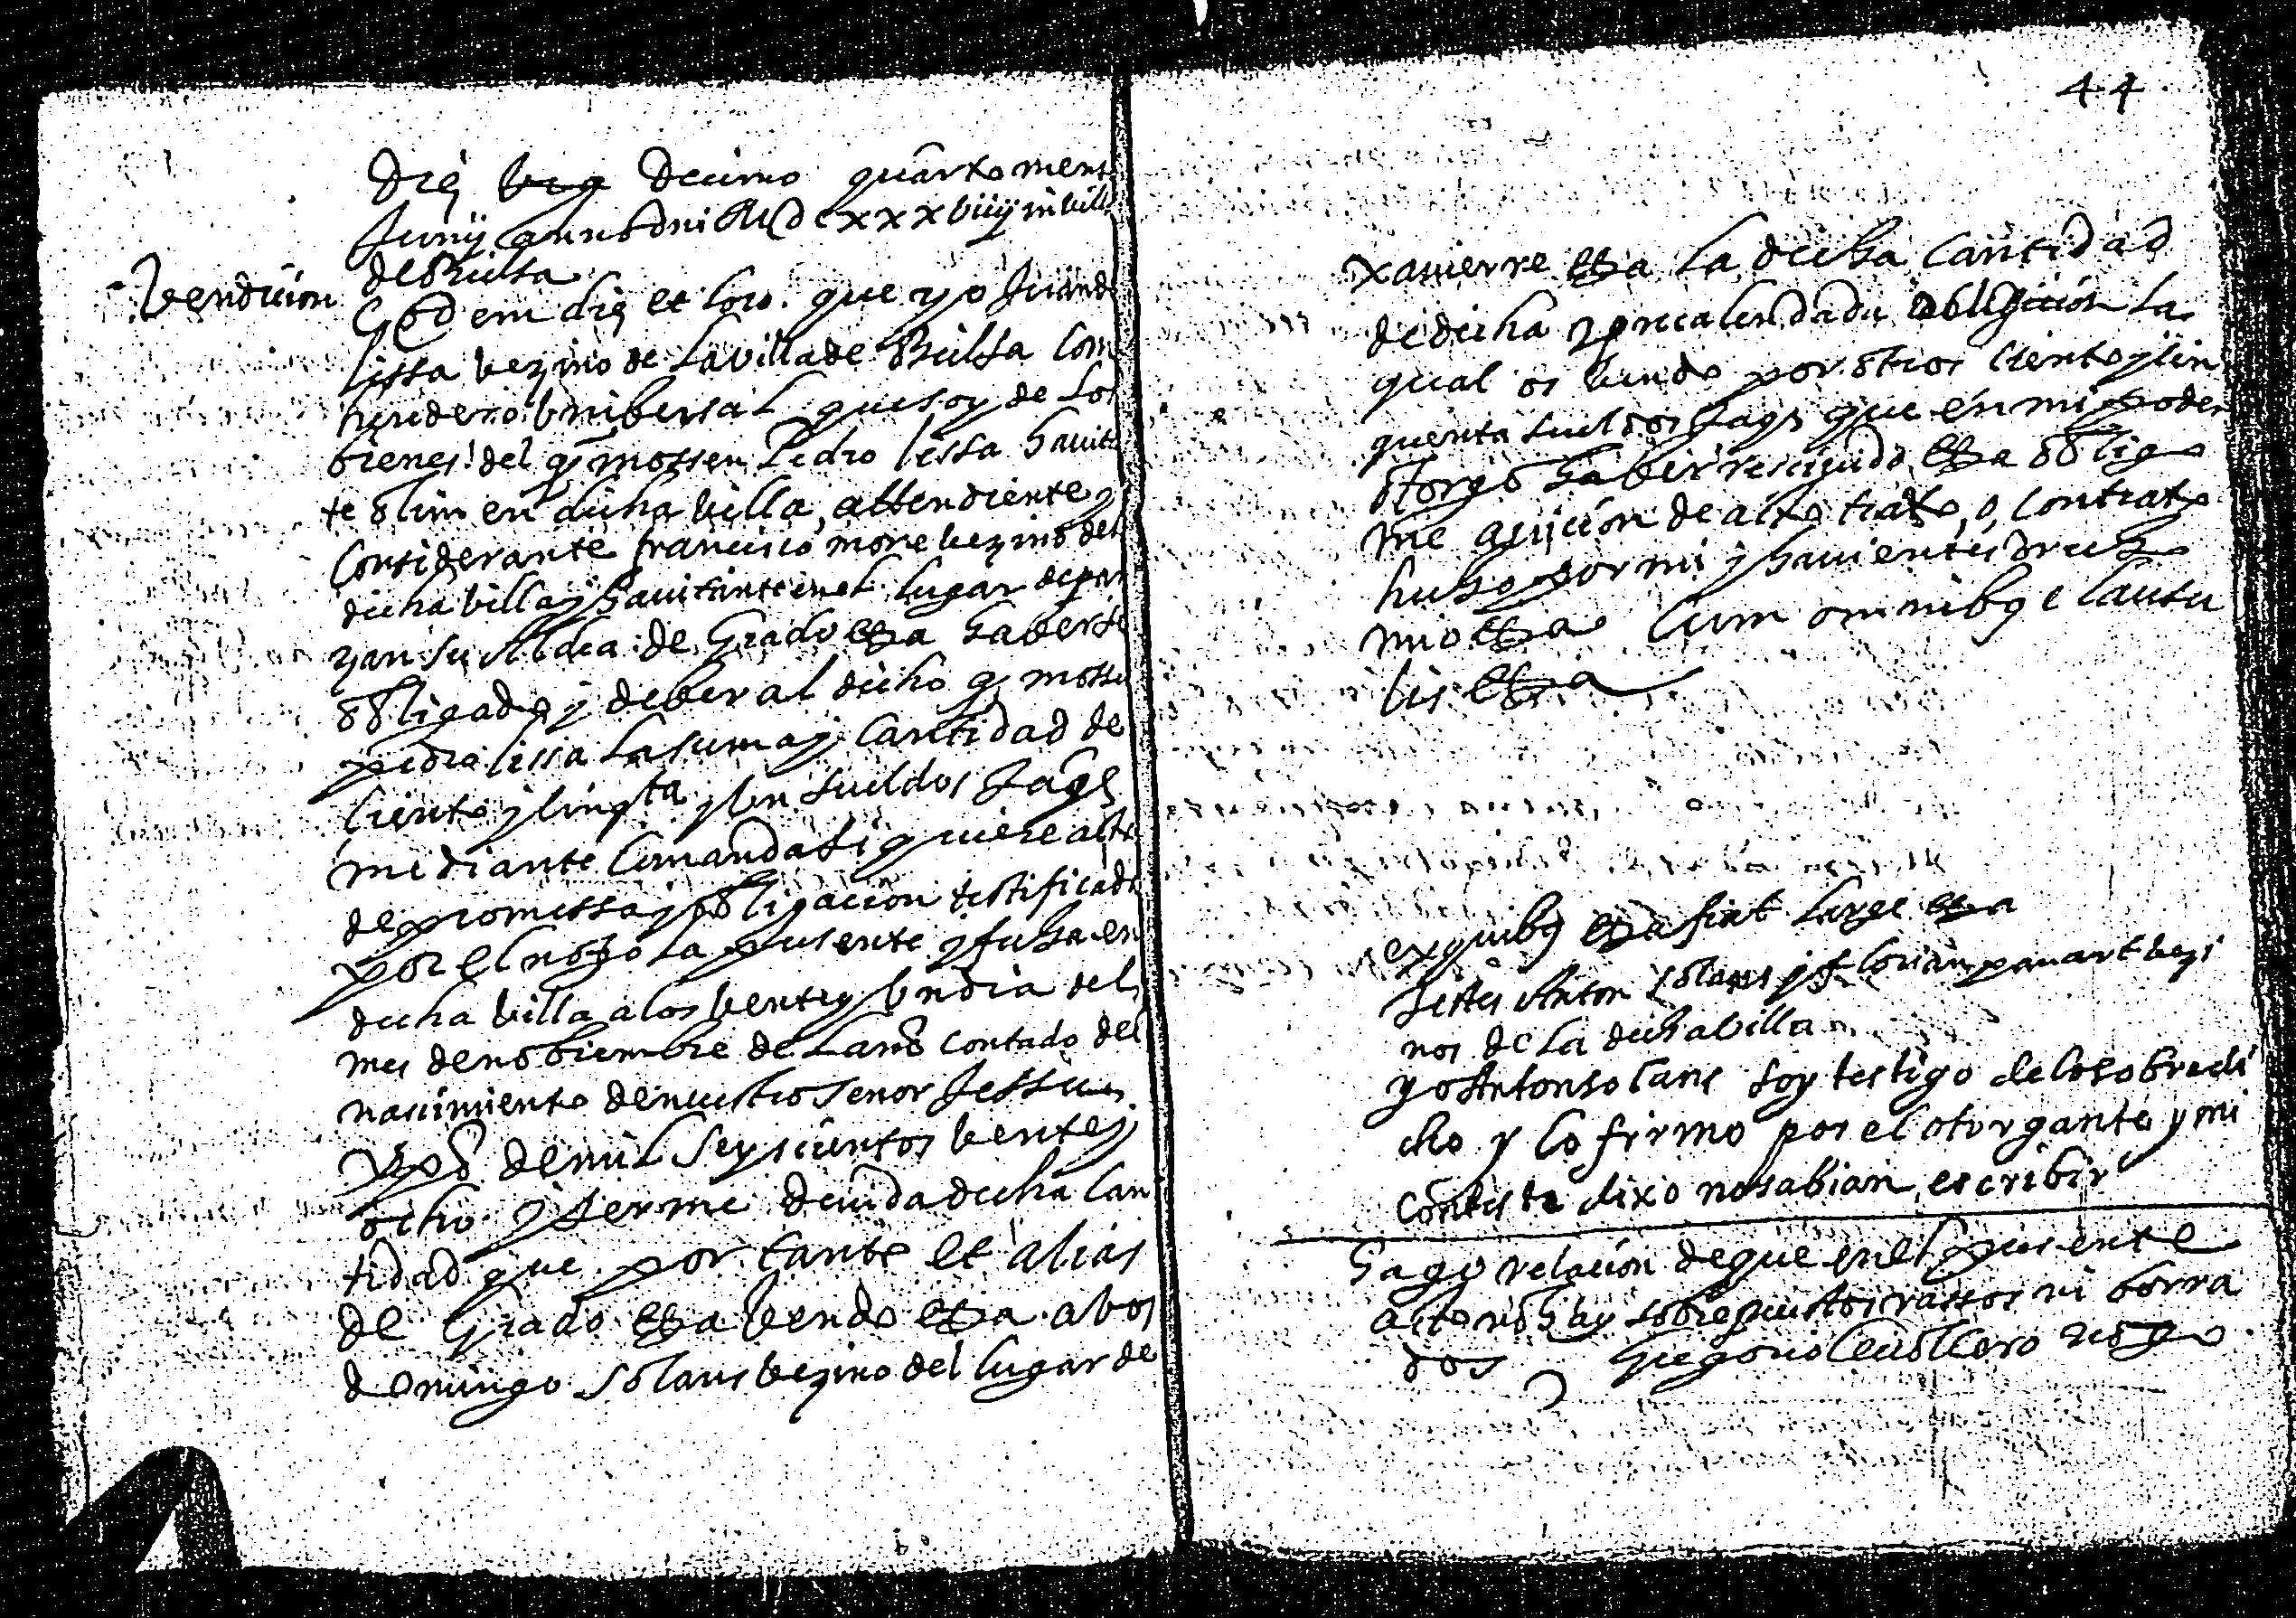 44
die decimo quarto mens
Junij anno dni MDCxxxviiij in villa
de Bielsa
Vendicion
Eodem die et loco. que yo Juan de
lissa vezino de la villa de Bielsa como
heredero vnibersal que soy de los
bienes del qm mossen Pedro lissa havitan
te olim en dicha villa, attendiente y
considerante francisco mone vezino de la
dicha villa y havitante en el lugar de par
zan su Aldea de Grado etza haberse
obligado y deber al dicho qm mossen
pedro lissa la suma y cantidad de
ciento y cinqta y un sueldos Jaqs
mediante comanda siquiere acto
de promessa y obligacion testificada
por el noto la presente y fecha en
dicha villa a los vente y un dia del
mes de nobiembre del año contado del
nascimiento de nuestro senor Jessu
Xpo de mil seyscientos vente y
ocho y serme devida dicha can
tidad que por tanto et alias
de Grado etza vendo etza a vos
domingo solans vezino del lugar de
xavierre etza la dicha cantidad
de dicha y precalendada obligacion la
qual os vendo por otros ciento y cin
quenta sueldos Jaqs que en mi poder
otorgo haber rescivido etza obligo
me a eviccion de acto trato, o, contrato
hecho por mi y havientes drecho
mio etza cum omnibq clausu
lis etza
ex quibq etza fiat large etza
Testes Anton solans y florian pauart vezi
nos de la dicha villa
yo Anton solans soy testigo de lo sobredi
cho y lo firmo por el otorgante y mi
conteste dixo no sabian escribir
Hago relacion de que en el presente
acto no hay sobrepuestos rassos ni borra
dos Gregorio noto